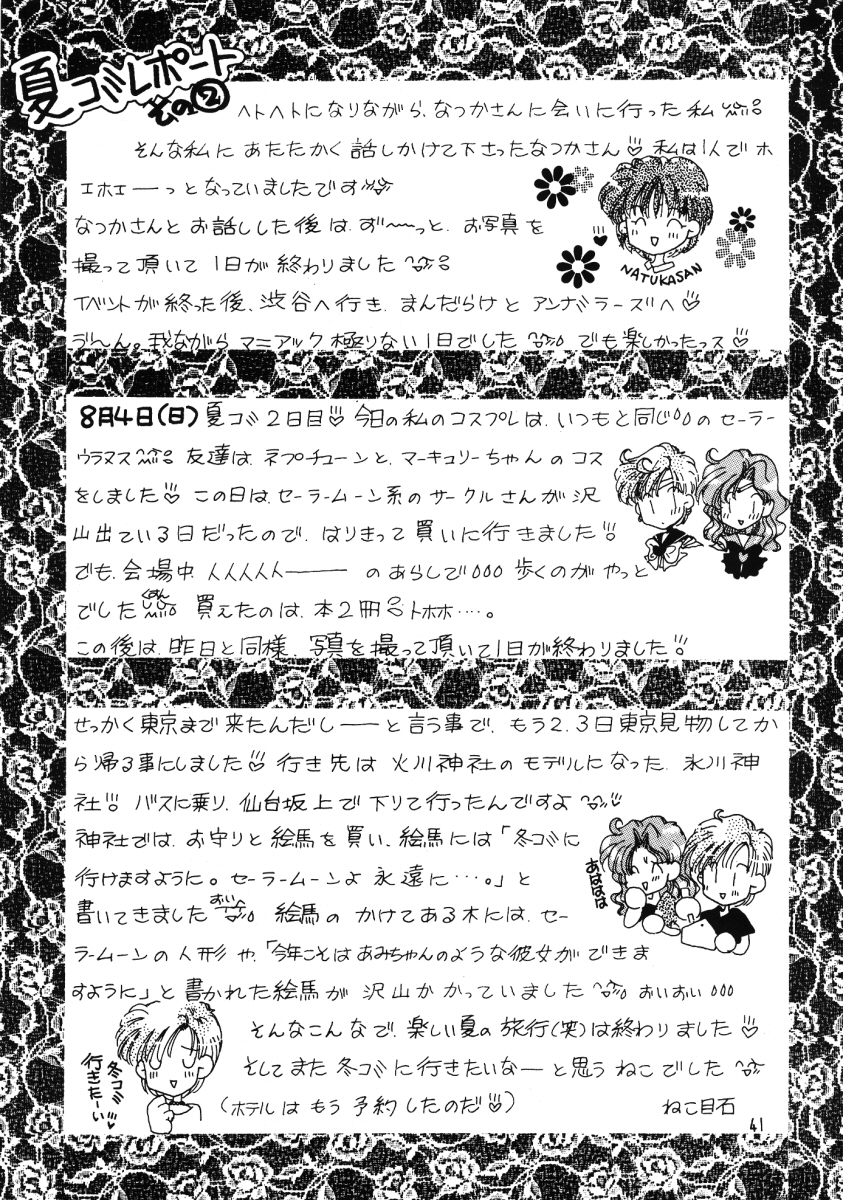 夏コミレポート
その②
ヘトヘトになりながら、なつかさんに会いに行った私
そんな私に あたたかく 話しかけて下さったなつかさん♡ 私は1人でホ
エホエーっとなっていましたです
なつかさんと お話しした後は、ず〜〜っと、お写真を
撮って頂いて 1日が終わりました
NATUKASAN
イベントが終った後、渋谷へ行き、まんだらけと アンナミラーズへ♡
う〜ん。我ながら マニアック極りない1日でした でも楽しかったっス♡
8月4日(日) 夏コミ2日目♡ 今日の私のコスプレは、いつもと同じ。。のセーラー
ウラヌス 友達は、ネプチューンと、マーキュリーちゃんのコス
をしました♡ この日は、セーラームーン系のサークルさんが沢
山出ている日だったので、はりきって買いに行きました!!
でも、会場中、人人人人人――― のあらしで。。。歩くのがやっと
でした 買えたのは、本2冊。トホホ‥‥。
この後は、昨日と同様、写真を撮って頂いて1日が終わりました!!
せっかく東京まで来たんだし――と言う事で、もう2、3日東京見物してか
ら帰る事にしました♡ 行き先は 火川神社のモデルになった、氷川神
社!! バスに乗り、仙台坂上で下りて行ったんですよ
神社では、お守りと絵馬を買い、絵馬には「冬コミに
行けますように。セーラームーンよ永遠に‥‥。」と
書いてきました おいっ 絵馬の かけてある木には、セー
おほほほ
ラームーンの人形や、「今年こそはあみちゃんのような彼女ができま
すように」と書かれた絵馬が沢山かかっていました おいおい。。。
そんなこんなで、楽しい夏の旅行(笑)は終わりました♡
そしてまた冬コミに行きたいなーと思うねこでした
冬コミ
行きたーい
(ホテルはもう予約したのだ♡)
ねこ目石
41